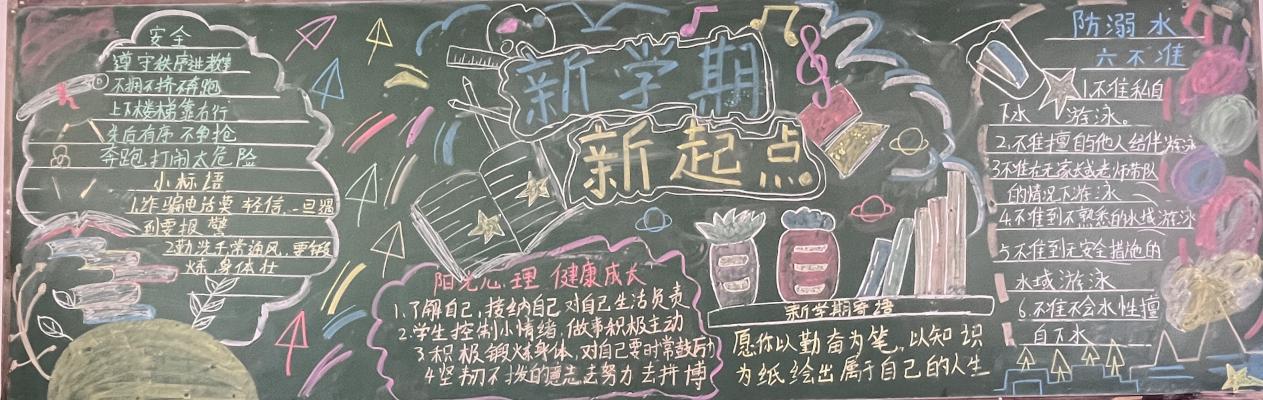 安全
遵守秩序进教室
不拥不挤不奔跑
上下楼梯靠右行
先后有序不争抢
奔跑打闹太危险
小标语
1.诈骗电话要轻信,一旦遇
到要报警
2勤洗手常通风,要锻
炼身体壮
新学期
新起点
阳光心理 健康成长
1.了解自己,接纳自己对自己生活负责
2.学生控制小情绪,做事积极主动
3积极锻炼身体,对自己要时常鼓励
4坚韧不拔的意志去努力去拼搏
新学期寄语
愿你以勤奋为笔,以知识
为纸绘出属于自己的人生
防溺水
六不准
1.不准私自
下水游泳。
2.不准擅自与他人结伴游泳
3不准在无家长或老师带队
的情况下游泳
4.不准到不熟悉的水域游泳
5不准到无安全措施的
水域游泳
6.不准不会水性擅
自下水